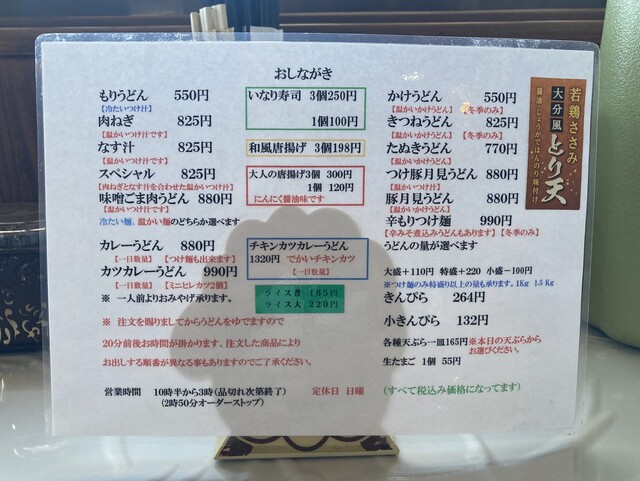 おしながき
もりうどん 550円
【冷たいつけ汁】
肉ねぎ 825円
【温かいつけ汁です】
なす汁 825円
【温かいつけ汁です】
スペシャル 825円
【肉ねぎとなす汁を合わせた温かいつけ汁】
味噌ごま肉うどん 880円
【温かいつけ汁です】
冷たい麺、温かい麺のどちらか選べます
カレーうどん 880円
【一日数量】【つけ麺も出来ます】
カツカレーうどん 990円
【一日数量】【ミニヒレカツ2個】
※ 一人前よりおみやげ承ります。
いなり寿司 3個250円
1個100円
和風唐揚げ 3個198円
大人の唐揚げ3個 300円
1個 120円
にんにく醤油味です
チキンカツカレーうどん
1320円 でかいチキンカツ
【一日数量】
ライス普 165円
ライス大 220円
かけうどん 550円
【温かいかけうどん】【冬季のみ】
きつねうどん 825円
【温かいかけうどん】【冬季のみ】
たぬきうどん 770円
【温かいかけうどん】
つけ豚月見うどん 880円
【温かいつけ汁です】
豚月見うどん 880円
【温かいかけうどん】
辛もりつけ麺 990円
【辛みそ煮込みうどんもあります】【冬季のみ】
うどんの量が選べます
大盛+110円 特盛+220 小盛-100円
※つけ麺のみ特盛り以上の量も承ります。1Kg 1.5 Kg
きんぴら 264円
小きんぴら 132円
各種天ぷら一皿165円※本日の天ぷらから
お選びください。
生たまご 1個 55円
※ 注文を賜りましてからうどんをゆでますので
20分前後お時間が掛かります、注文した商品により
お出しする順番が異なる事もありますのでご了承ください。
営業時間 10時半から3時(品切れ次第終了) 定休日 日曜
(2時50分オーダーストップ)
(すべて税込み価格になってます)
若鶏ささみ
大分風とり天
醤油・しょうがでほんのり味付け